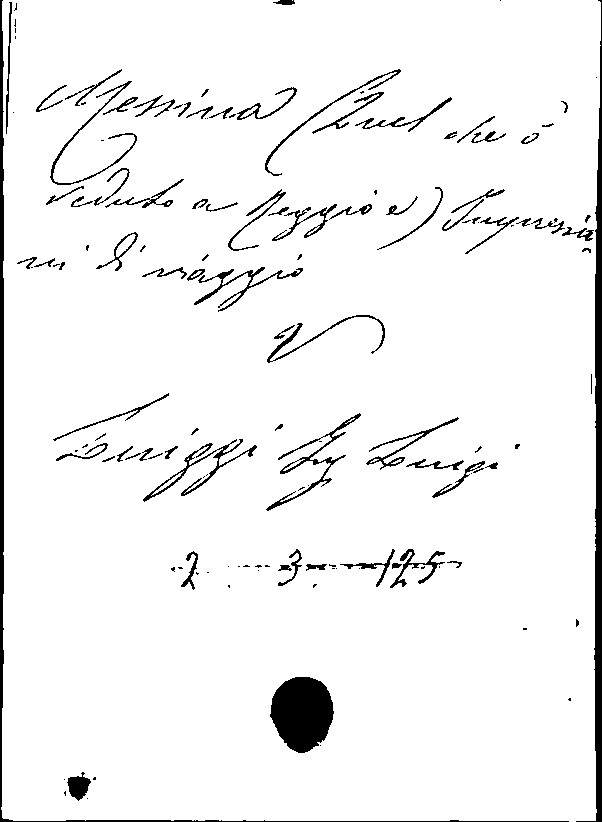 Messina (Quel che ò
veduto a Reggio e) Impressio-
ni di viaggio
Ing Luigi
2 3 125